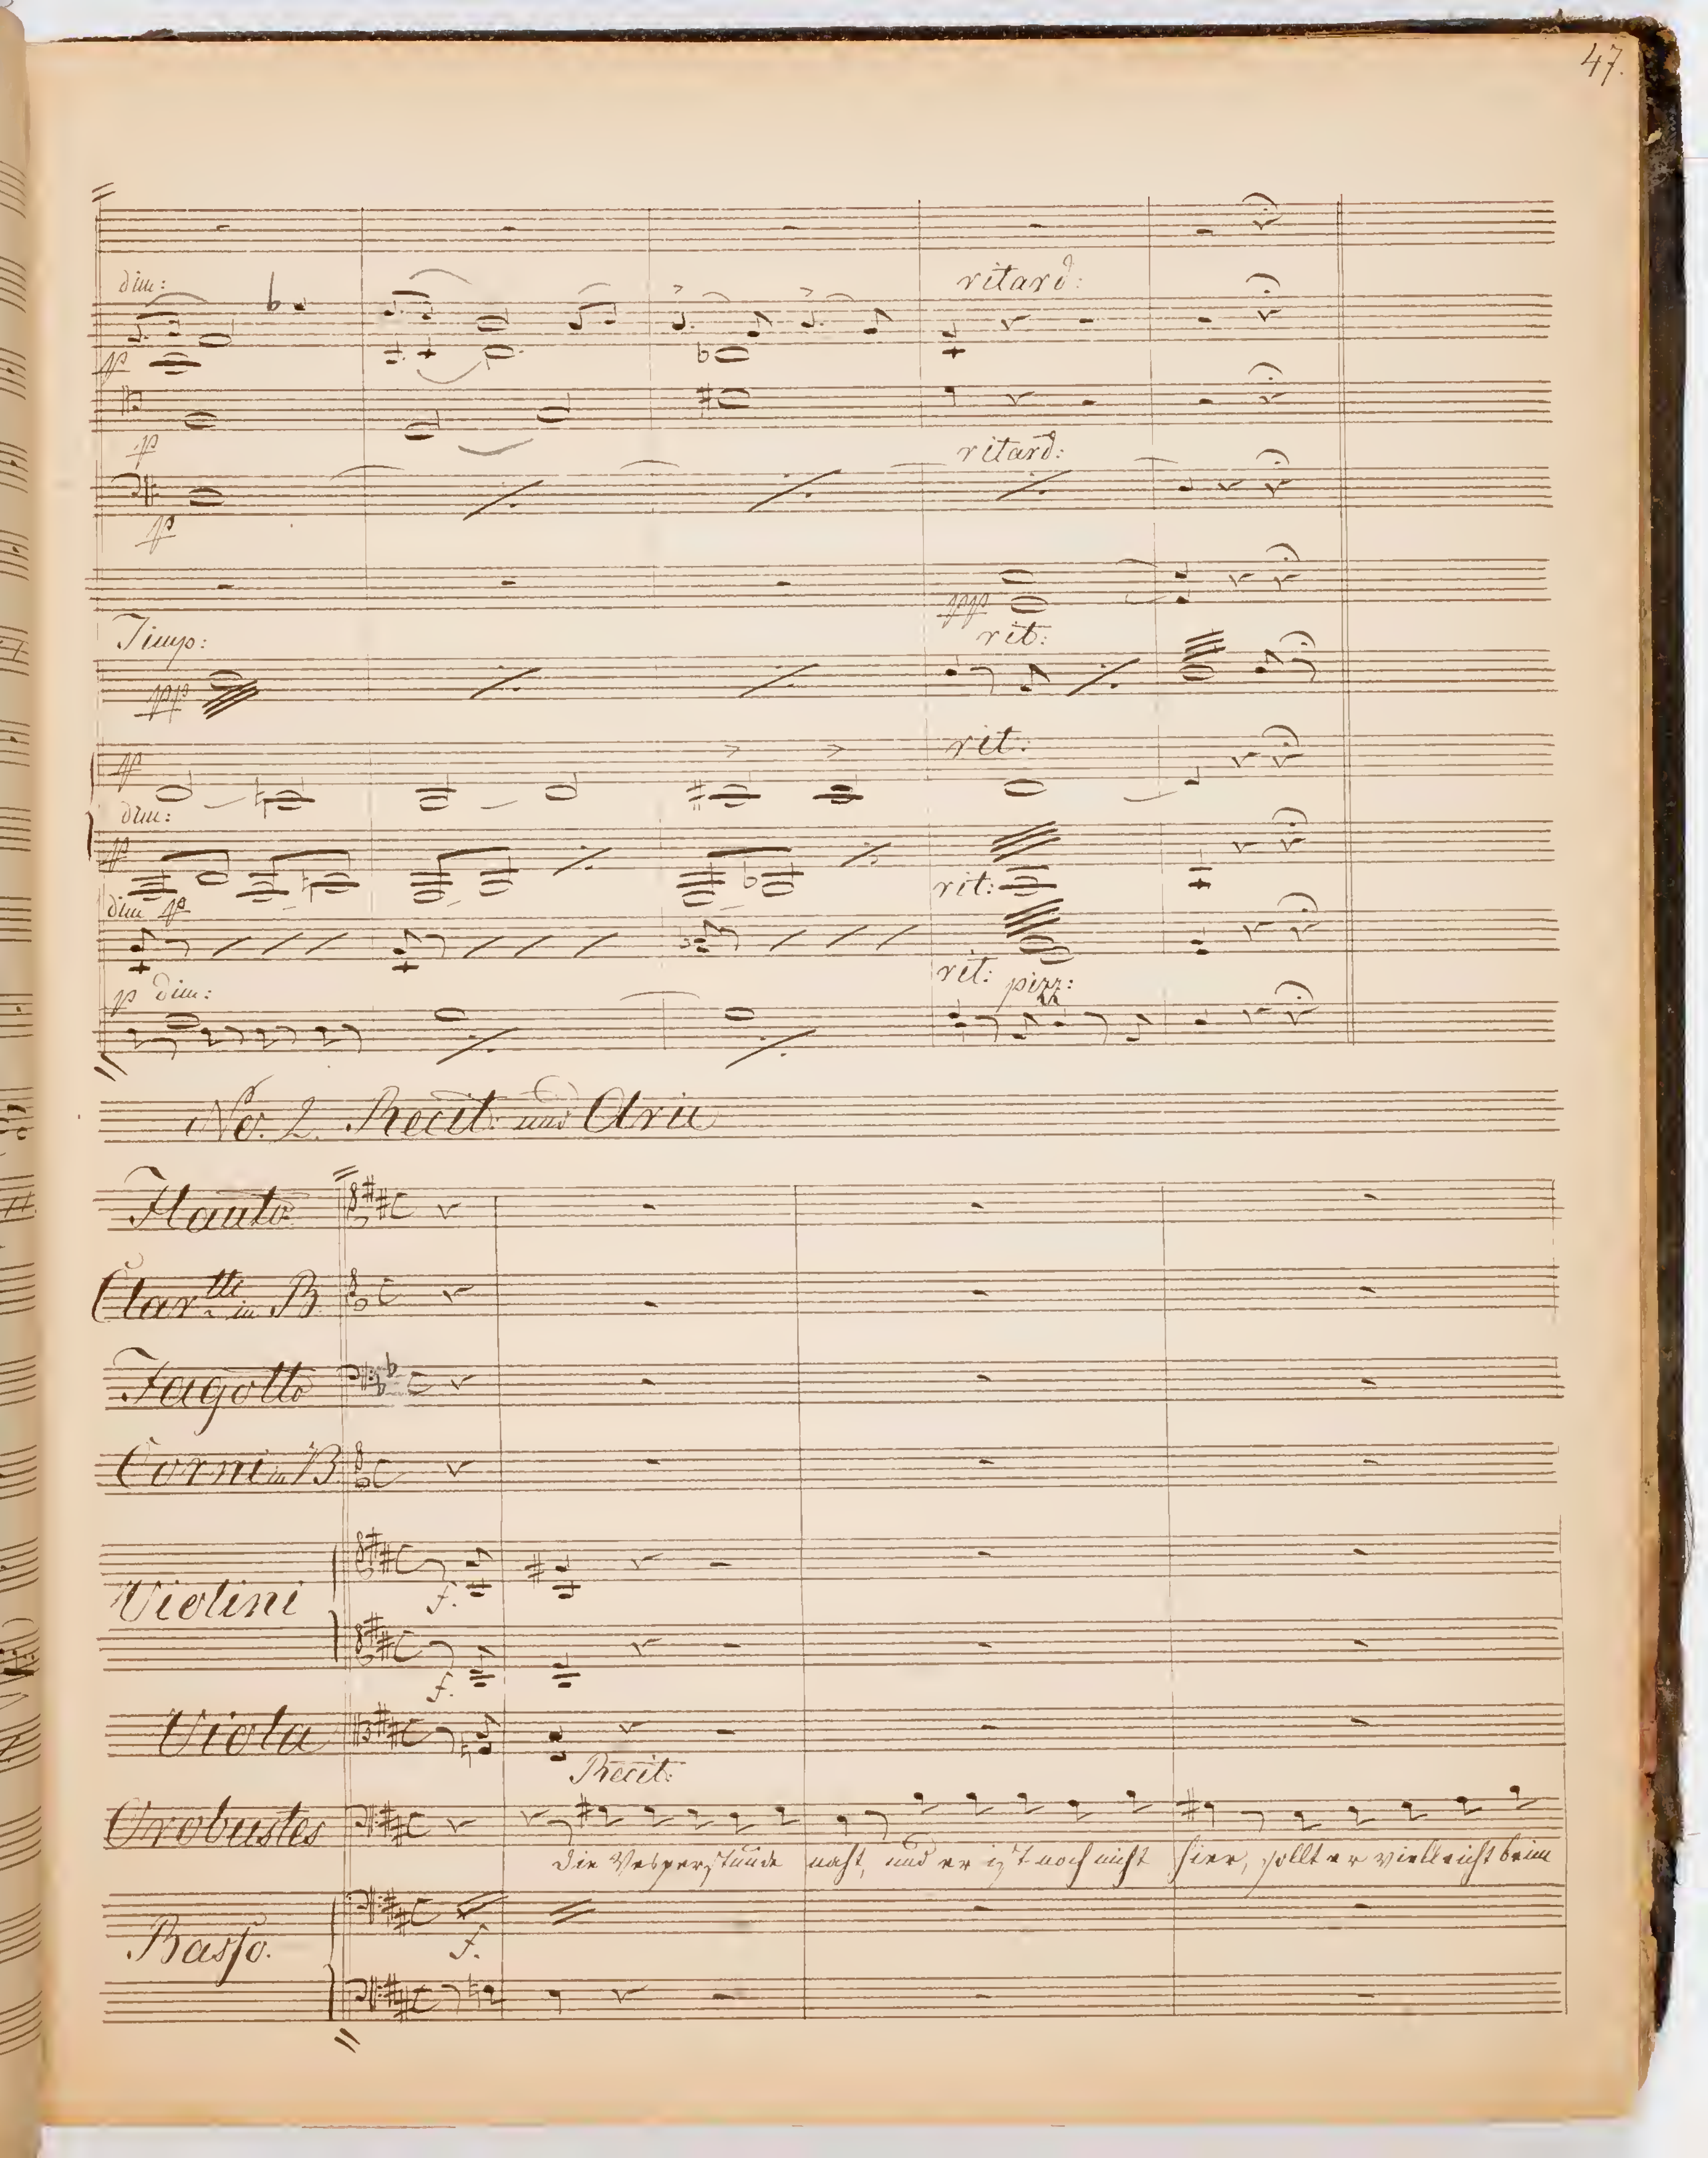 47.
dim:
ritard:
pp
p
ritard:
pp
ppp
Timp:
rit:
ppp
pp
rit:
dim:
pp
rit:
dim pp
rit: pizz:
p dim:
No. 2. Recit: und Aria
Flauto
Clartti in B
Fagotto
Corni in B
Violini
f.
f.
Viola
Recit:
Orobustes
die Vesperstunde naht, und er ist noch nicht hier, sollt er vielleicht beim
f.
Basso.